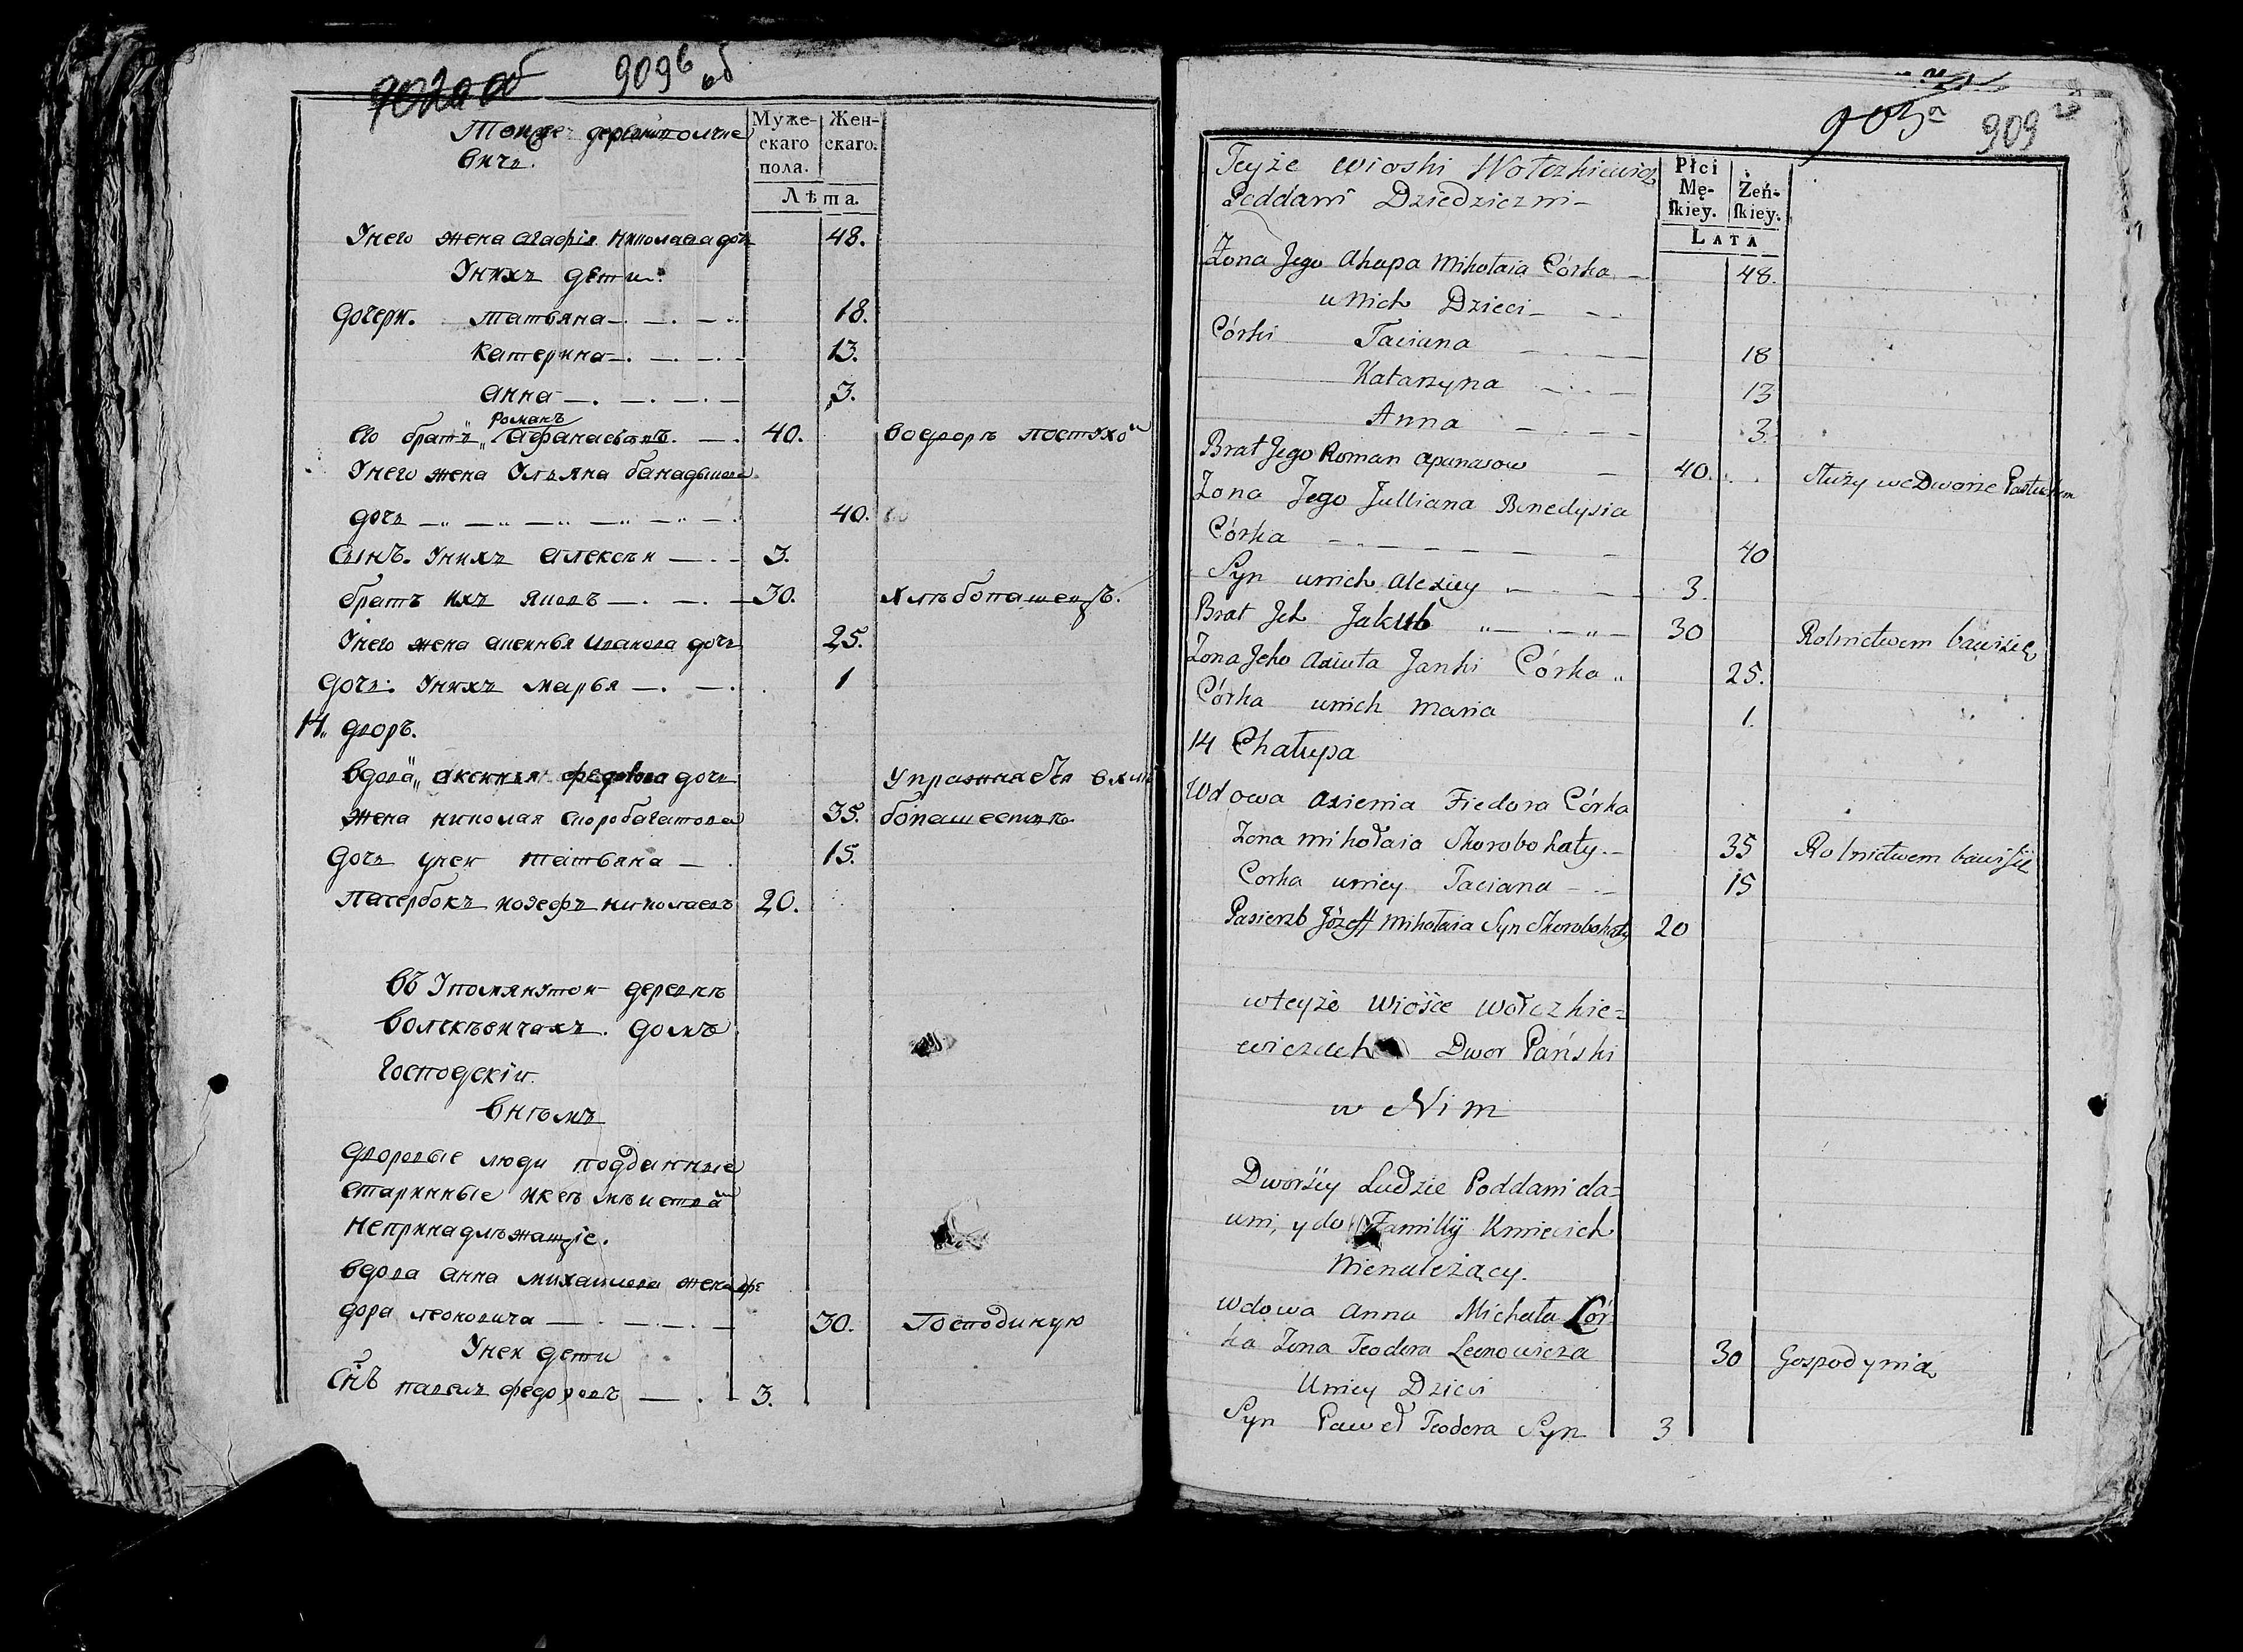 909в об
Тоиже деревни волчке
вичъ.
Муже-
скаго
пола.
Жен-
скаго.
Лѣта.
Унего жена агафія николаева дочь 48.
Унихъ дети:
дочери. татьяна 18.
катерина 13.
анна 3.
его братъ романъ афанасьевъ. 40. водворѣ пастухо
Унего жена Ульяна
дочь 40.
Сынъ. Унихъ алексѣи 3.
братъ ихъ яковъ 30. хлѣбопашецъ.
Унего жена аксинья иванова дочь 25.
дочь. Унихъ марья 1
14. дворъ.
вдова аксинья федорова дочь упражняется вхлѣ
жена николая скоробагатова 35. бопашествѣ
дочь унеи татьяна 15.
пасербокъ иозефъ николаевъ 20.
въ Упомянутои деревнѣ
волчкѣвичахъ. домъ
господскіи.
внѣмъ
дворовые люди подданныя
старинные
непринадлѣжащіе.
вдова анна михаилова жена фе
дора леоновича 30. Господиную
Унеи дети
Снъ павелъ федоровъ 3.
909
Teyże wioski Wołczkiewicz
Poddani Dziedziczni
Płci
Mę-
skiey.
Żeń-
skiey.
LATA
Żona Jego Ahapa Mikołaia Córka 48.
u Nich Dzieci
Córki Taciana 18
Katarzyna 13
Anna 3.
Brat Jego Roman apanasow 40. służy we Dworze Pastuchem
Żona Jego Julliana Benedysia
Córka 40
Syn unich Alexiey 3.
Brat Jch Jakub 30 Rolnictwem bawi się
Żona Jeho Axiuta Janki Córka 25.
Córka unich Maria 1.
14 Chałupa
Wdowa Axienia Fiedora Córka
Żona mikołaia Skorobohaty 35 Rolnictwem bawi się
Corka uniey Taciana 15
Pasierzb Józeff Mikołaia Syn Skorobohaty 20
wteyże Wiosce Wołczkie=
wiczach Dwor Pański
w Nim
Dworscy Ludzie Poddani da=
wni, y do Familly Kmiecich
Nienależący.
Wdowa Anna Michała Cór
ka Żona Teodora Leonowicza 30 Gospodynia
Uniey Dzieci
Syn Paweł Teodora Syn 3